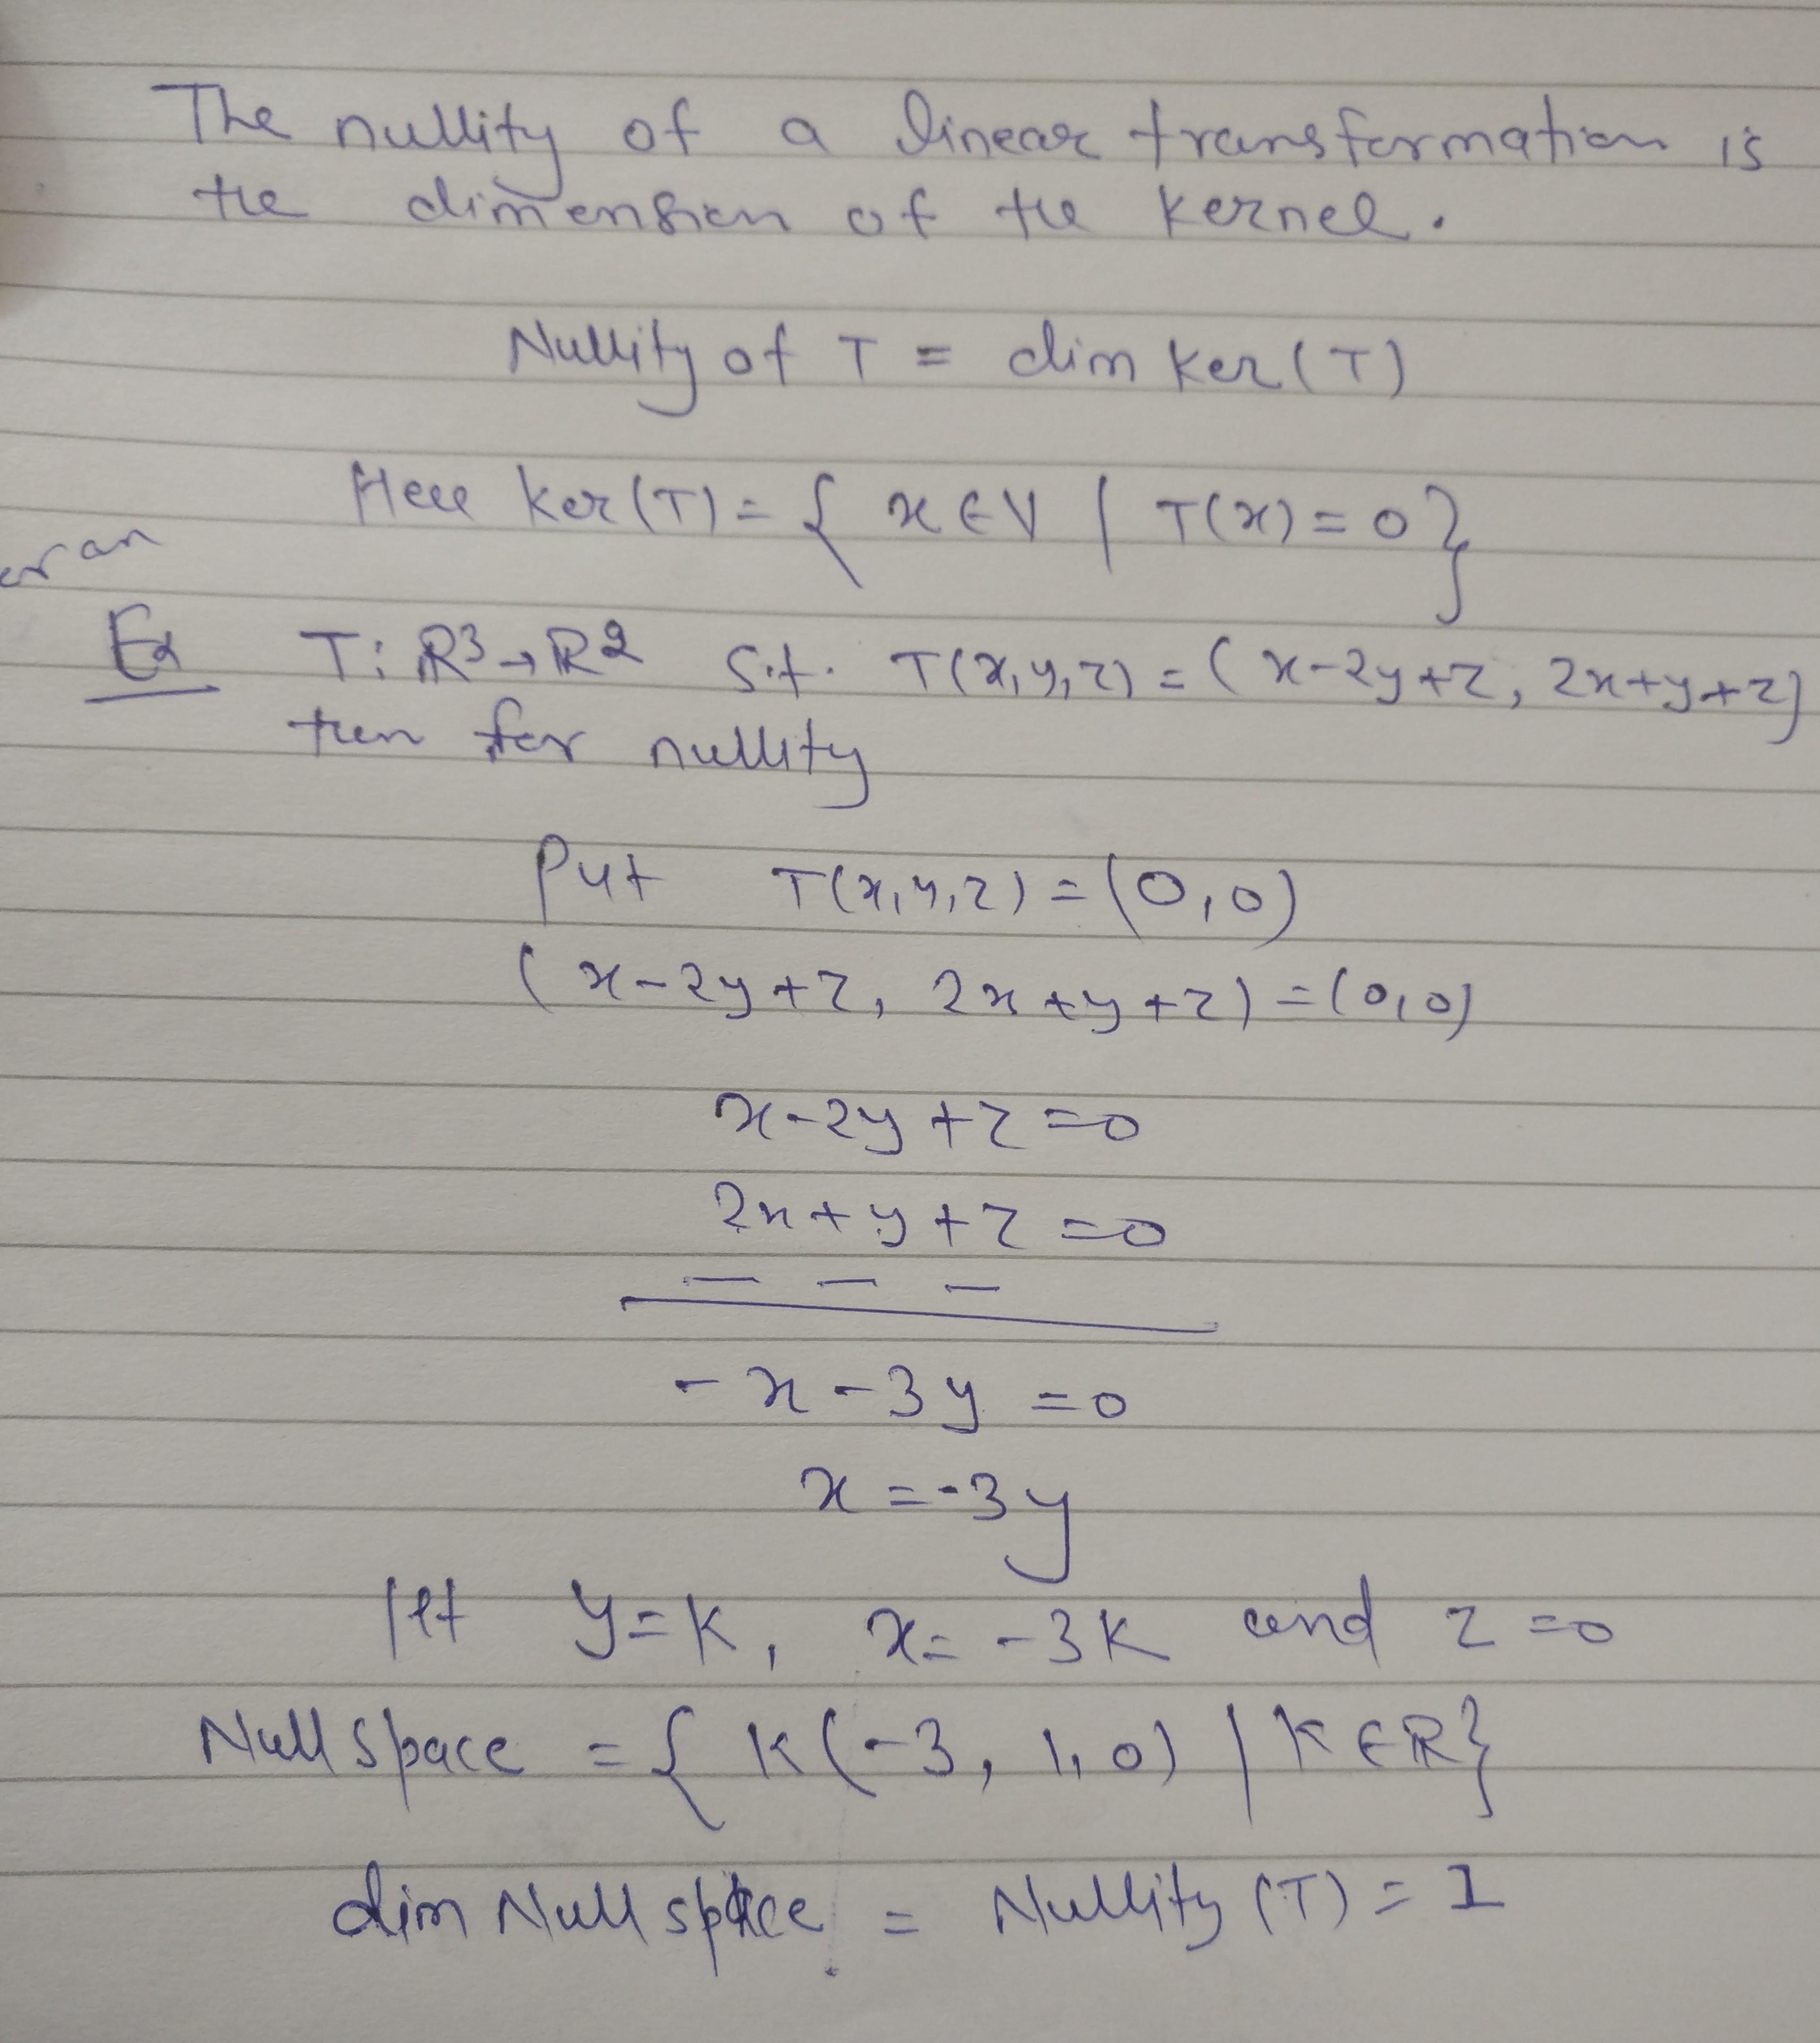 The nullity of a linear transformation is
the dimension of the kernel.
Nullity of T = dim Ker(T)
Here Ker(T) = { x ∈ V | T(x) = 0 }
Ex T: R³ → R² s.t. T(x,y,z) = (x-2y+z, 2x+y+z)
then for nullity
Put T(x,y,z) = (0,0)
(x-2y+z, 2x+y+z) = (0,0)
x-2y+z=0
2x+y+z=0
— — —
-x-3y=0
x=-3y
let y=K, x=-3K and z=0
Null space = { K(-3, 1, 0) | K ∈ R }
dim Null space = Nullity (T) = 1